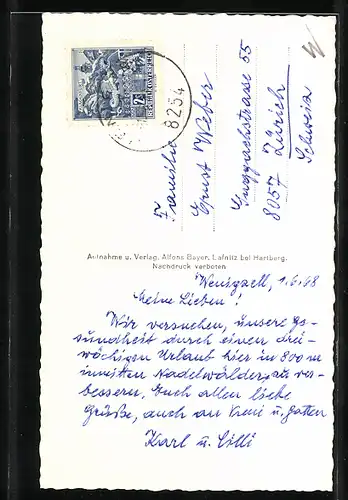 8234
Familie
Ernst Weber
Guggachstrasse 55
8057 Zürich
Schweiz
Aufnahme u. Verlag. Alfons Bayer, Lafnitz bei Hartberg.
Nachdruck verboten
Wenigzell, 1.6.68
Meine Lieben!
Wir versuchen, unsere Ge-
sundheit durch einen drei-
wöchigen Urlaub hier in 800 m
inmitten Nadelwälder, zu ver-
bessern. Euch allen liebe
Grüße, auch an u. Gatten
Karl u. Cilli